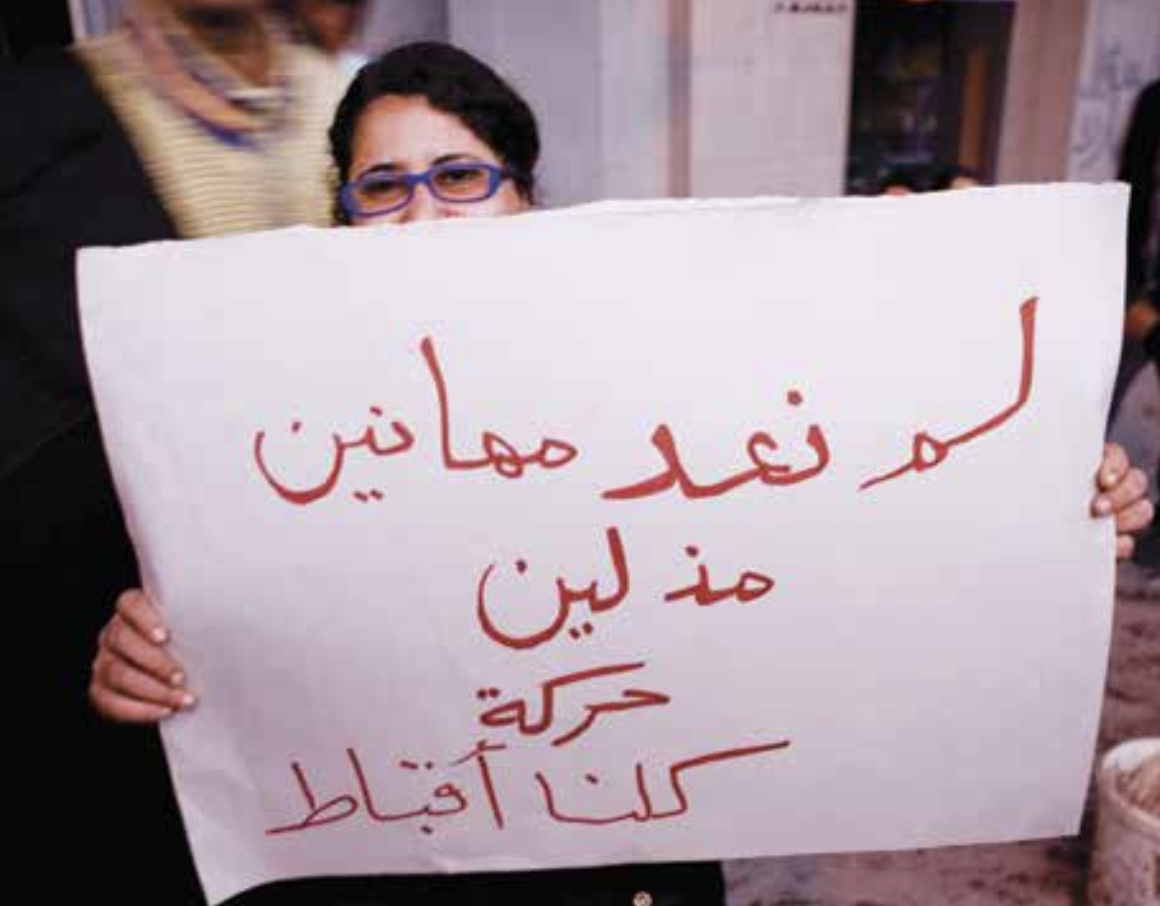 لم نعد مهانين
مذلين
حركة
كلنا أقباط